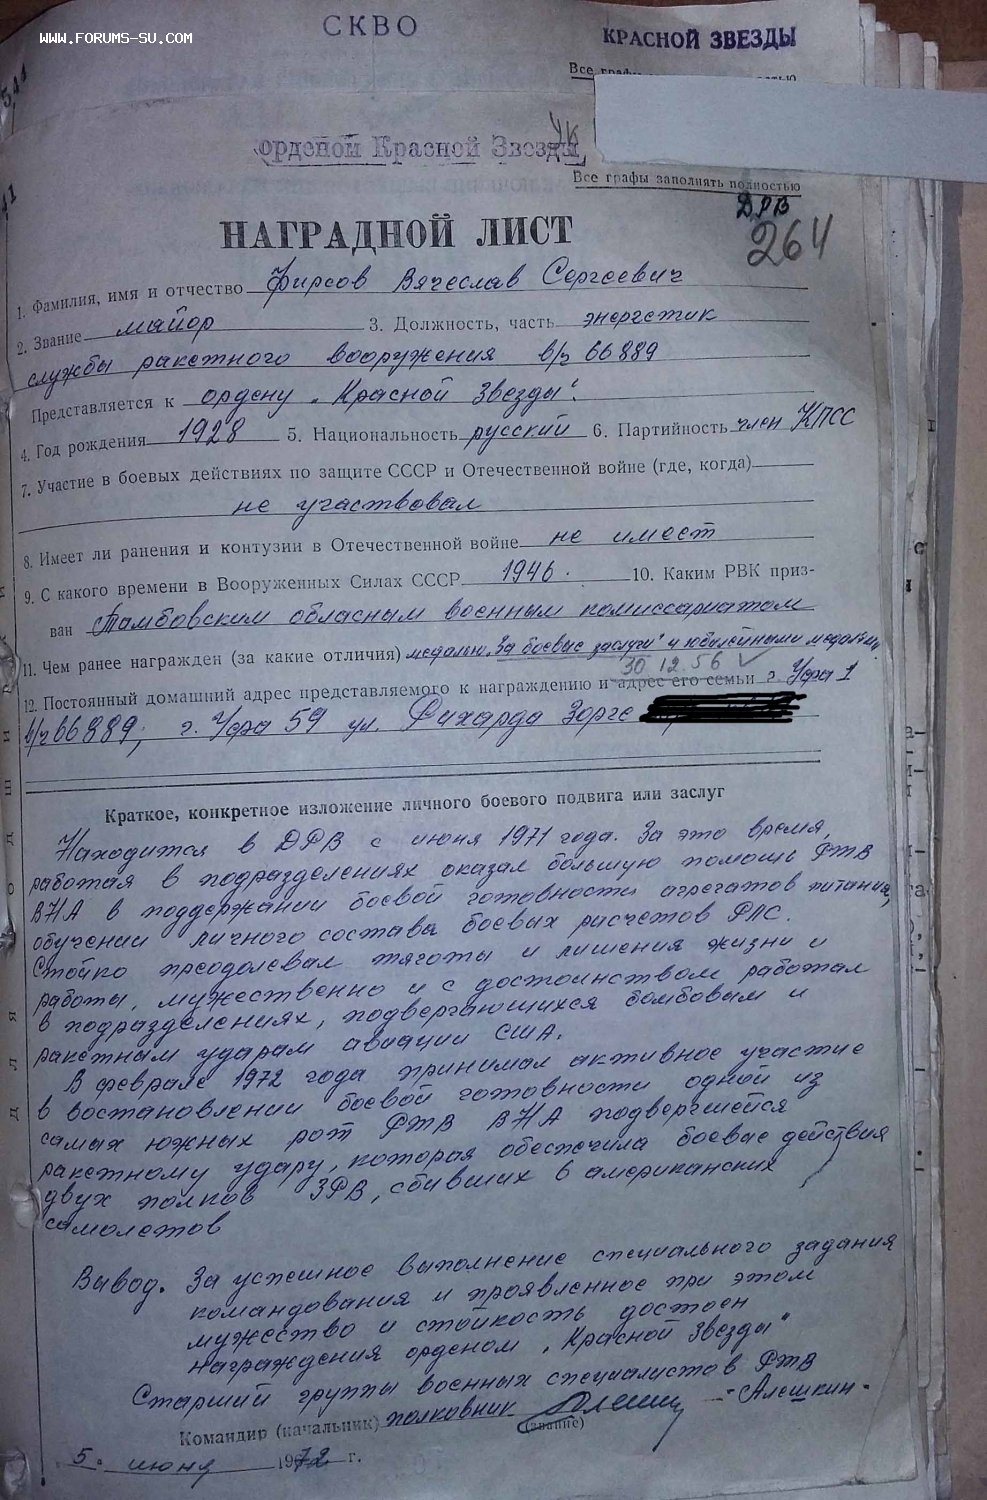 WWW.FORUMS-SU.COM
СКВО
КРАСНОЙ ЗВЕЗДЫ
Все графы
орденом Красной Звезды
Все графы заполнять полностью
ДРВ
264
НАГРАДНОЙ ЛИСТ
1. Фамилия, имя и отчество Фирсов Вячеслав Сергеевич
2. Звание майор 3. Должность, часть энергетик
службы ракетного вооружения в/ч 66889
Представляется к ордену „Красной Звезды".
4. Год рождения 1928 5. Национальность русский 6. Партийность член КПСС
7. Участие в боевых действиях по защите СССР и Отечественной войне (где, когда)
не участвовал
8. Имеет ли ранения и контузии в Отечественной войне не имеет
9. С какого времени в Вооруженных Силах СССР 1946. 10. Каким РВК приз-
ван Тамбовским обласным военным комиссариатом
11. Чем ранее награжден (за какие отличия) медалью „За боевые заслуги" и юбилейными медалями
30 12. 56
12. Постоянный домашний адрес представляемого к награждению и адрес его семьи г. Уфа 1
в/ч 66889; г. Уфа 59 ул. Рихарда Зорге
Краткое, конкретное изложение личного боевого подвига или заслуг
Находится в ДРВ с июня 1971 года. За это время,
работая в подразделениях оказал большую помощь РТВ
ВНА в поддержании боевой готовности агрегатов питания,
обучении личного состава боевых расчетов РЛС.
Стойко преодолевал тяготы и лишения жизни и
работы, мужественно и с достоинством работал
в подразделениях, подвергающихся бомбовым и
ракетным ударам авиации США.
В феврале 1972 года принимал активное участие
в востановлении боевой готовности одной из
самых южных рот РТВ ВНА подвергшейся
ракетному удару, которая обеспечила боевые действия
двух полков ЗРВ, сбивших 6 американских
самолетов
Вывод. За успешное выполнение специального задания
командования и проявленное при этом
мужество и стойкость достоен
награждения орденом „Красной Звезды"
Старший группы военных специалистов РТВ
Командир (начальник) полковник -Алешкин-
(звание)
5. июня 1972 г.